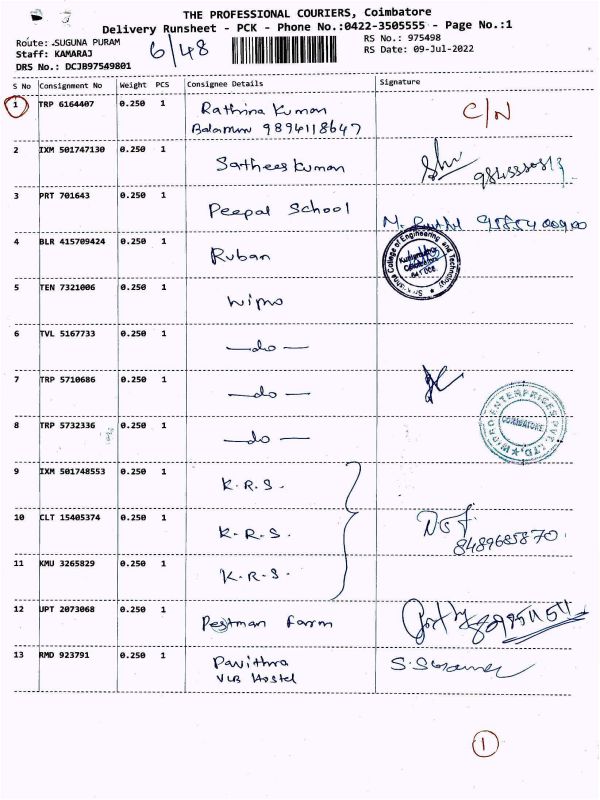 THE PROFESSIONAL COURIERS, Coimbatore
Delivery Runsheet - PCK - Phone No.:0422-3505555 - Page No.:1
Route: SUGUNA PURAM
Staff: KAMARAJ
DRS No.: DCJB97549801
6/48
RS No.: 975498
RS Date: 09-Jul-2022
S No Consignment No Weight PCS Consignee Details Signature
1 TRP 6164407 0.250 1 Rathina Kumar C/N
Balamm 9894118647
2 IXM 501747130 0.250 1 Sathees Kumar
3 PRT 701643 0.250 1 Peepal School
4 BLR 415709424 0.250 1 Ruban
5 TEN 7321006 0.250 1 Wipro
6 TVL 5167733 0.250 1 —do—
7 TRP 5710686 0.250 1 —do—
8 TRP 5732336 0.250 1 —do—
WIPRO ENTERPRISES PVT. LTD.
COIMBATORE
9 IXM 501748553 0.250 1 K.R.S.
10 CLT 15405374 0.250 1 K.R.S.
8489685870
11 KMU 3265829 0.250 1 K.R.S.
12 UPT 2073068 0.250 1 Pestman farm
13 RMD 923791 0.250 1 Pavithra
VLB Hostel
1